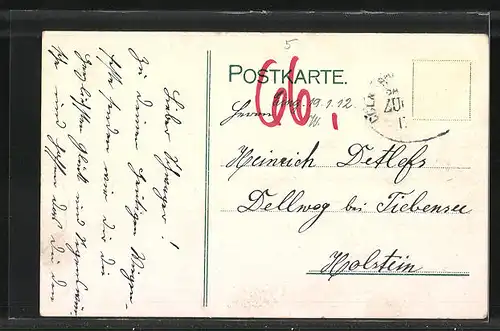 5
POSTKARTE.
66.
19.1.12
Herrn
Heinrich Detlefs
Dellweg bei Tiebensee
Holstein
Lieber Schwager!
Zu deinem heutigen Wiegen-
feste senden wir Dir die
herzlichsten Glück und Segenswün-
sche und hoffen das Du den